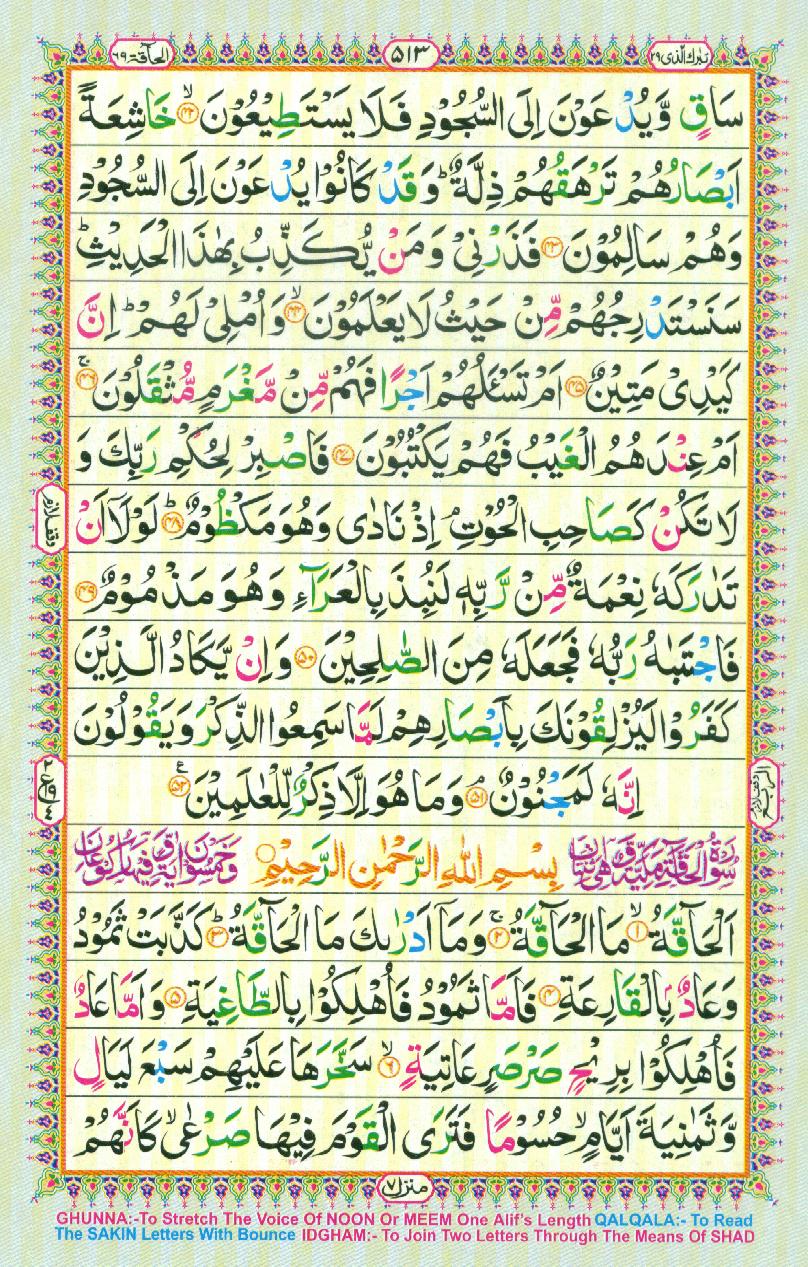 تبٰرك الّذى ٢٩
٥١٣
الحآقّة ٦٩
سَاقٍ وَّيُدْعَوْنَ اِلَى السُّجُوْدِ فَلَا يَسْتَطِيْعُوْنَ ۙ‏﴿۴۲﴾ خَاشِعَةً
اَبْصَارُهُمْ تَرْهَقُهُمْ ذِلَّةٌ ؕ وَقَدْ كَانُوْا يُدْعَوْنَ اِلَى السُّجُوْدِ
وَهُمْ سَالِمُوْنَ ‏﴿۴۳﴾ فَذَرْنِىْ وَمَنْ يُّكَذِّبُ بِهٰذَا الْحَدِيْثِ ؕ
سَنَسْتَدْرِجُهُمْ مِّنْ حَيْثُ لَا يَعْلَمُوْنَ ۙ‏﴿۴۴﴾ وَاُمْلِىْ لَهُمْ ؕ اِنَّ
كَيْدِىْ مَتِيْنٌ ‏﴿۴۵﴾ اَمْ تَسْـَٔلُهُمْ اَجْرًا فَهُمْ مِّنْ مَّغْرَمٍ مُّثْقَلُوْنَ ۚ‏﴿۴۶﴾
اَمْ عِنْدَهُمُ الْغَيْبُ فَهُمْ يَكْتُبُوْنَ ‏﴿۴۷﴾ فَاصْبِرْ لِحُكْمِ رَبِّكَ وَ
لَا تَكُنْ كَصَاحِبِ الْحُوْتِ ۘ اِذْ نَادٰى وَهُوَ مَكْظُوْمٌ ؕ‏﴿۴۸﴾ لَوْلَاۤ اَنْ
تَدٰرَكَهٗ نِعْمَةٌ مِّنْ رَّبِّهٖ لَنُبِذَ بِالْعَرَآءِ وَهُوَ مَذْمُوْمٌ ‏﴿۴۹﴾
فَاجْتَبٰىهُ رَبُّهٗ فَجَعَلَهٗ مِنَ الصّٰلِحِيْنَ ‏﴿۵۰﴾ وَاِنْ يَّكَادُ الَّذِيْنَ
كَفَرُوْا لَيُزْلِقُوْنَكَ بِاَبْصَارِهِمْ لَمَّا سَمِعُوا الذِّكْرَ وَيَقُوْلُوْنَ
اِنَّهٗ لَمَجْنُوْنٌ ۘ‏﴿۵۱﴾ وَمَا هُوَ اِلَّا ذِكْرٌ لِّلْعٰلَمِيْنَ ‏﴿۵۲﴾ ع
سُوْرَةُ الْحَآقَّةِ مَكِّيَّةٌ وَّهِىَ ثِنْتَانِ بِسْمِ اللهِ الرَّحْمٰنِ الرَّحِيْمِ وَخَمْسُوْنَ اٰيَةً وَّفِيْهَا رُكُوْعَانِ
اَلْحَآقَّةُ ۙ‏﴿۱﴾ مَا الْحَآقَّةُ ۚ‏﴿۲﴾ وَمَاۤ اَدْرٰىكَ مَا الْحَآقَّةُ ؕ‏﴿۳﴾ كَذَّبَتْ ثَمُوْدُ
وَعَادٌۢ بِالْقَارِعَةِ ‏﴿۴﴾ فَاَمَّا ثَمُوْدُ فَاُهْلِكُوْا بِالطَّاغِيَةِ ‏﴿۵﴾ وَاَمَّا عَادٌ
فَاُهْلِكُوْا بِرِيْحٍ صَرْصَرٍ عَاتِيَةٍ ۙ‏﴿۶﴾ سَخَّرَهَا عَلَيْهِمْ سَبْعَ لَيَالٍ
وَّثَمٰنِيَةَ اَيَّامٍ ۙ حُسُوْمًا فَتَرَى الْقَوْمَ فِيْهَا صَرْعٰى ۙ كَاَنَّهُمْ
منزل ٧
GHUNNA:-To Stretch The Voice Of NOON Or MEEM One Alif's Length QALQALA:- To Read
The SAKIN Letters With Bounce IDGHAM:- To Join Two Letters Through The Means Of SHAD